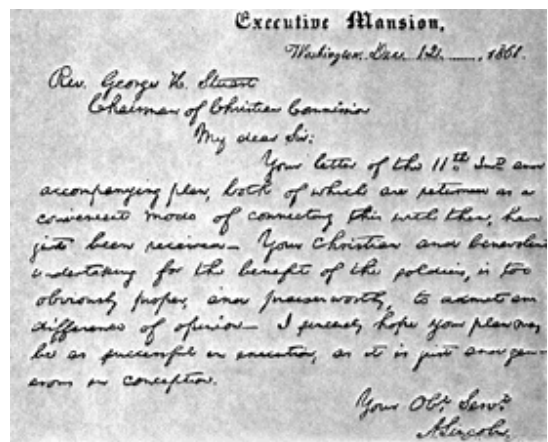 Executive Mansion,
Washington, Dec 12, 1861.
Rev. George H. Stuart
Chairman of Christian Commission
My dear Sir:
Your letter of the 11th Inst. and
accompanying plan, both of which are returned as a
convenient mode of connecting this with them, have
just been received— Your Christian and benevolent
undertaking for the benefit of the soldiers, is too
obviously proper, and praiseworthy, to admit any
difference of opinion— I sincerely hope your plan may
be as successful in execution, as it is just and gen-
erous in conception.
Your Obt. Servt.
A. Lincoln